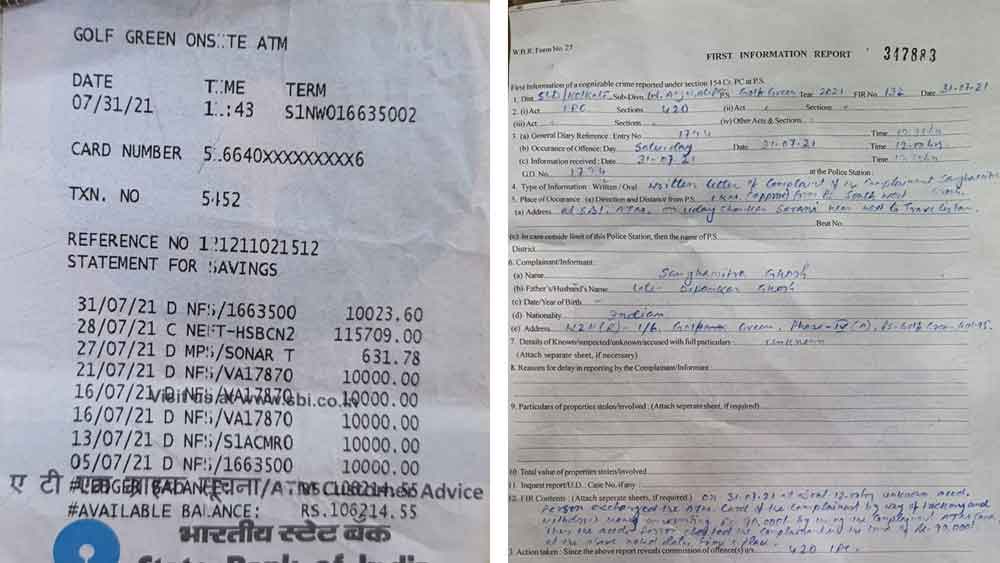 GOLF GREEN ONS TE ATM
DATE TIME TERM
07/31/21 1 :43 S1NW016635002
CARD NUMBER 5 6640XXXXXXXXX6
TXN. NO 5452
REFERENCE NO 1 1211021512
STATEMENT FOR SAVINGS
31/07/21 D NFS/1663500 10023.60
28/07/21 C NEFT-HSBCN2 115709.00
27/07/21 D MPS/SONAR T 631.78
21/07/21 D NFS/VA17870 10000.00
16/07/21 D NFS/VA17870 10000.00
Visit us at www.sbi.co.in
16/07/21 D NFS/VA17870 10000.00
13/07/21 D NFS/S1ACMRO 10000.00
05/07/21 D NFS/1663500 10000.00
#LEDGER BALANCE: RS.106214.55
ए टी एम ग्राहक सूचना/ATM Customer Advice
#AVAILABLE BALANCE: RS.106214.55
भारतीय स्टेट बैंक
State Bank of India
W.B.P. Form No. 27
FIRST INFORMATION REPORT 347883
First Information of a cognizable crime reported under section 154 Cr. PC at P.S.
1. Dist. SSD/Kolkata Sub-Divn. P.S. Golf Green Year 2021 FIR No. 136 Date 31-07-21
2. (i) Act IPC Sections 420 (ii) Act Sections
(iii) Act Sections (iv) Other Acts & Sections
3. (a) General Diary Reference : Entry No. 1794 Time
(b) Occurance of Offence : Day Saturday Date 31-07-21 Time 12.00 hrs
(c) Information received : Date 31-07-21 Time
G.D. No. 1794 at the Police Station :
4. Type of Information : Written / Oral Written letter of Complaint of the Complainant Sanghamitra Ghosh
5. Place of Occurance : (a) Direction and Distance from P.S. 1 km (approx) from PS South West
(a) Address at SBI, ATM, Uday Shankar Sarani near
Beat No.
(c) In case outside limit of this Police Station, then the name of P.S.
District
6. Complainant/Informant :
(a) Name Sanghamitra Ghosh
(b) Father's/Husband's Name Late- Dipankar Ghosh
(c) Date/Year of Birth
(d) Nationality Indian
(e) Address 1/6, Golf Green, Phase-IV(A), PS-Golf Green, Kol-95.
7. Details of Known/suspected/unknown/accused with full particulars : Unknown
(Attach separate sheet, if necessary)
8. Reasons for delay in reporting by the Complainant/Informant
9. Particulars of properties stolen/involved : (Attach seperate sheet, if required)
10. Total value of properties stolen/involved
11. Inquest report/U.D. : Case No. if any
12. FIR Contents : (Attach seperate sheets, if required.) On 31-07-21 at about 12.00 hrs unknown
person exchanged the ATM Card of the Complainant by way of
withdrew money amounting Rs. by using the Complainant ATM Card
thus the person cheated the Complainant
at the above noted date, time & place.
3. Action taken : Since the above report reveals commission of offence(s) u/s 420 IPC.